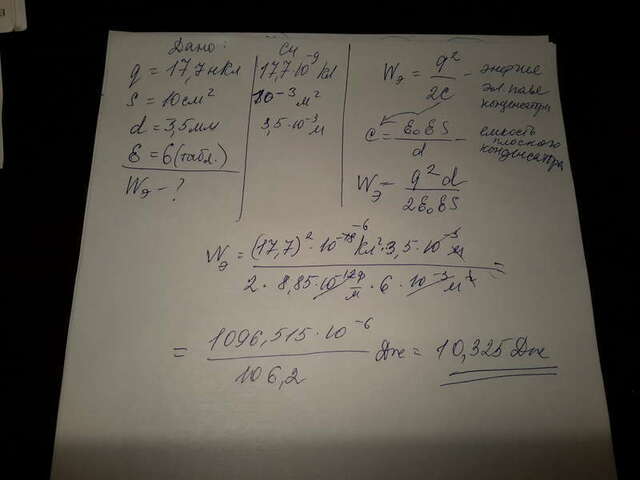 Дано:
q = 17,7 нКл
S = 10 см²
d = 3,5 мм
ε = 6 (табл.)
Wэ - ?
Си
17,7·10⁻⁹ Кл
10⁻³ м²
3,5·10⁻³ м
Wэ = q²/2C - энергие
эл поле
конденсатора
C = ε₀εS/d - емкость
плоского
конденсатора
Wэ = q²d/2ε₀εS
Wэ = (17,7)²·10⁻¹⁸ ⁻⁶ Кл²·3,5·10⁻³ м / 2·8,85·10⁻¹² ф/м ·6·10⁻³ м² =
= 1096,515·10⁻⁶/106,2 Дж = 10,325 Дж